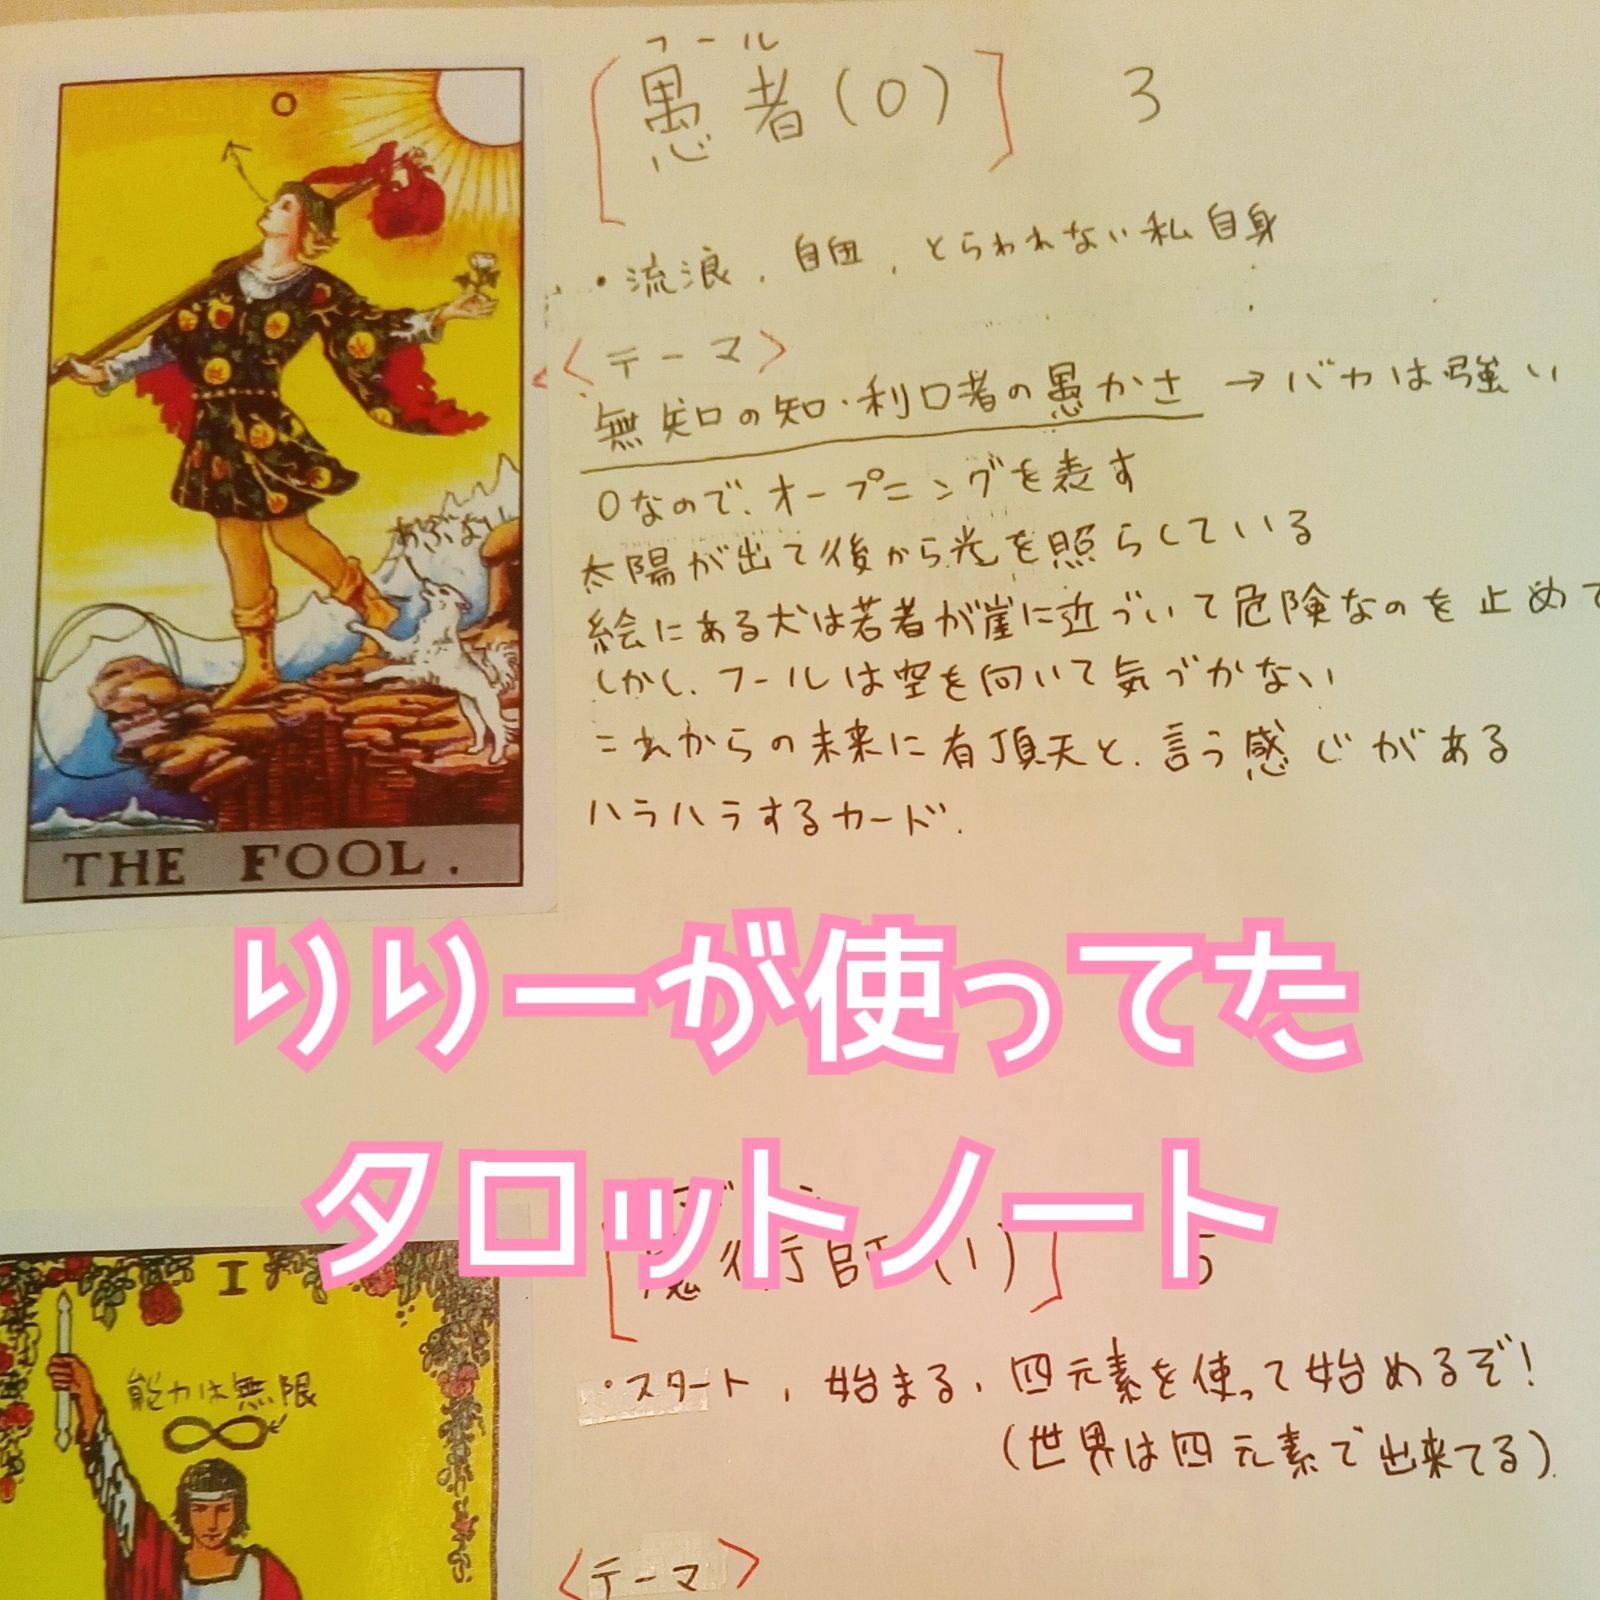 0
THE FOOL.
あぶない
フール
[愚者(0)] 3
・流浪、自由、とらわれない私自身
<テーマ>
無知の知・利口者の愚かさ → バカは強い
0なので、オープニングを表す
太陽が出て後から光を照らしている
絵にある犬は若者が崖に近づいて危険なのを止めて
しかし、フールは空を向いて気づかない
これからの未来に有頂天と、言う感じがある
ハラハラするカード.
りりーが使ってた
タロットノート
[魔術師(1)] 5
I
能力は無限
・スタート、始まる、四元素を使って始めるぞ!
(世界は四元素で出来てる)
<テーマ>